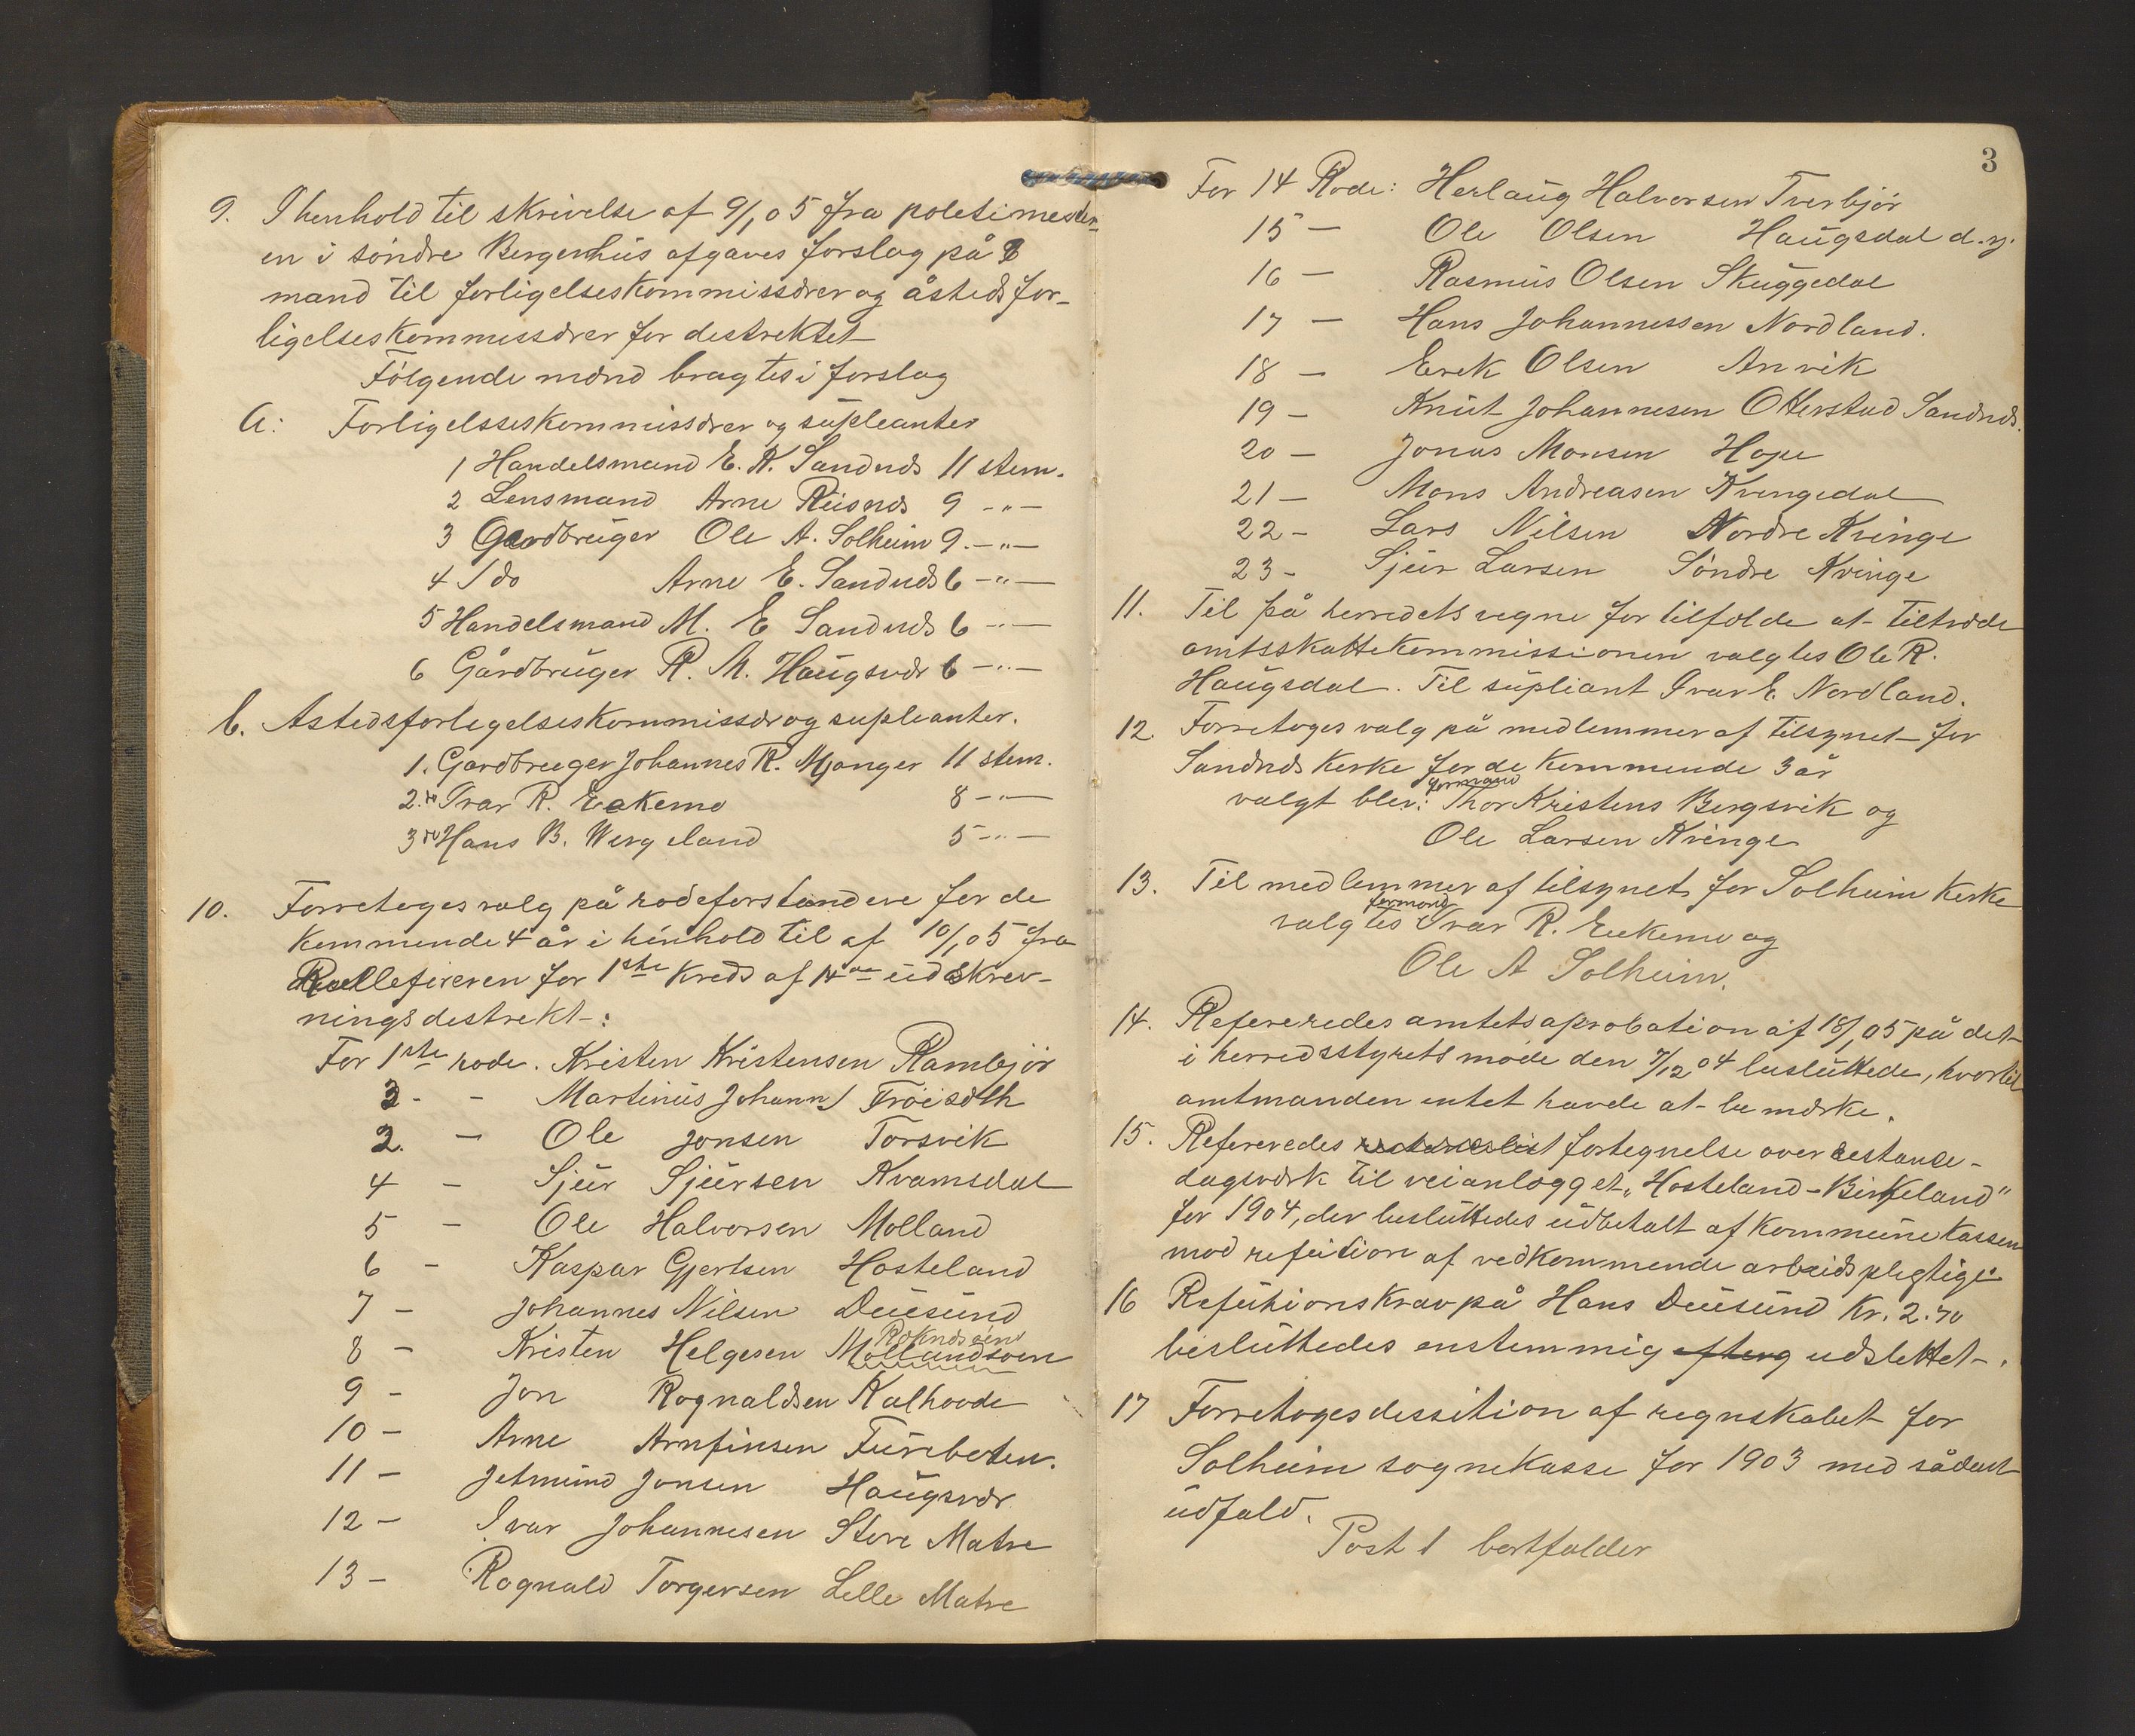 9. I henhold til skrivelse af 9/1 05 fra poletimester-
en i söndre Bergenhus afgaves forslag på 8
mand til forligelseskommissærer og åsteds for-
ligelseskommessærer for destrektet
Fölgende mænd bragtes i forslag
a: Forligelsseskommissærer og supleanter
1 Handelsmand E. K. Sandnæs 11 stem.
2 Lensmand Arne Risnæs 9 -"-
3 Gardbruger Ole A. Solheim 9. -"-
4 do Arne E. Sandnæs 6 -"-
5 Handelsmand M. E Sandnæs 6 -"-
6 Gårdbruger R. M. Haugsvær 6 -"-
b. Astedsforlegelseskommissær og supleanter.
1. Gardbruger Johannes R. Mjanger 11 stem.
2. do Ivar R. Eekemo 8 -"-
3 do Hans B. Wergeland 5 -"-
10. Forretoges valg på rodeforstandere for de
kommende 4 år i hinhold til af 10/1 05 fra
Rullefireren for 1ste kreds af 14de udskrev-
ningsdestrekt:
For 1ste rode. Kristen Kristensen Rambjör
3. - Martinus Johann. Fröisæth
2. - Ole Jonsen Torsvik
4 - Sjur Sjursen Kvamsdal
5 - Ole Halvorsen Molland
6 - Kaspar Gjertsen Hosteland
7 - Johannes Nilsen Duesund
8 - Kristen Helgesen Mollandsven
9 - Jon Rognaldsen Kalhovde
10 - Arne Arnfinsen Fureboten.
11 - Jetmund Jonsen Haugsvær
12 - Ivar Johannesen Store Matre
13 - Rognald Torgersen Lelle Matre
3
For 14 Rode: Herlaug Halvorsen Tverbjör
15 - Ole Olsen Haugsdal d. y.
16 - Rasmus Olsen Skuggedal
17 - Hans Johannessen Nordland.
18 - Erek Olsen Anvik
19 - Knut Johannesen Otterstad Sandnæs.
20 - Jonas Monsen Hope
21 - Mons Andreasen Kvingedal
22 - Lars Nilsen Nordre Kvinge
23 - Sjur Larsen Söndre Kvinge
11. Til på herredets vegne for tilfælde at tiltræde
amtsskattekommissionen valgtes Ole R.
Haugsdal. Til supliant Ivar E. Nordland.
12 Forretoges valg på medlemmer af tilsynet for
Sandnæs kerke for de kommende 3 år
formand
valgt blev: Thor Kristens Bergsvik og
Ole Larsen Kvinge
13. Til medlemmer af tilsynet for Solheim kerke
formand
valgtes Ivar R. Eekemo og
Ole A Solheim.
14. Refereredes amtets aprobation af 18/1 05 på det
i herredsstyrets möde den 7/12 04 besluttede, hvortil
amtmanden intet havde at bemærke.
15. Refereredes fortegnelse over restance-
dagsværk til veianlægget "Hosteland-Birkeland"
for 1904, der besluttedes udbetalt af kommunekassen
mod refution af vedkommende arbeidspligtige.
16 Refutionskrav på Hans Duesund kr. 2.70
besluttedes enstemmig efterg udslettet.
17 Forretoges dessition af regnskabet for
Solheim sognekasse for 1903 med sådant
udfald.
Post 1 bortfalder